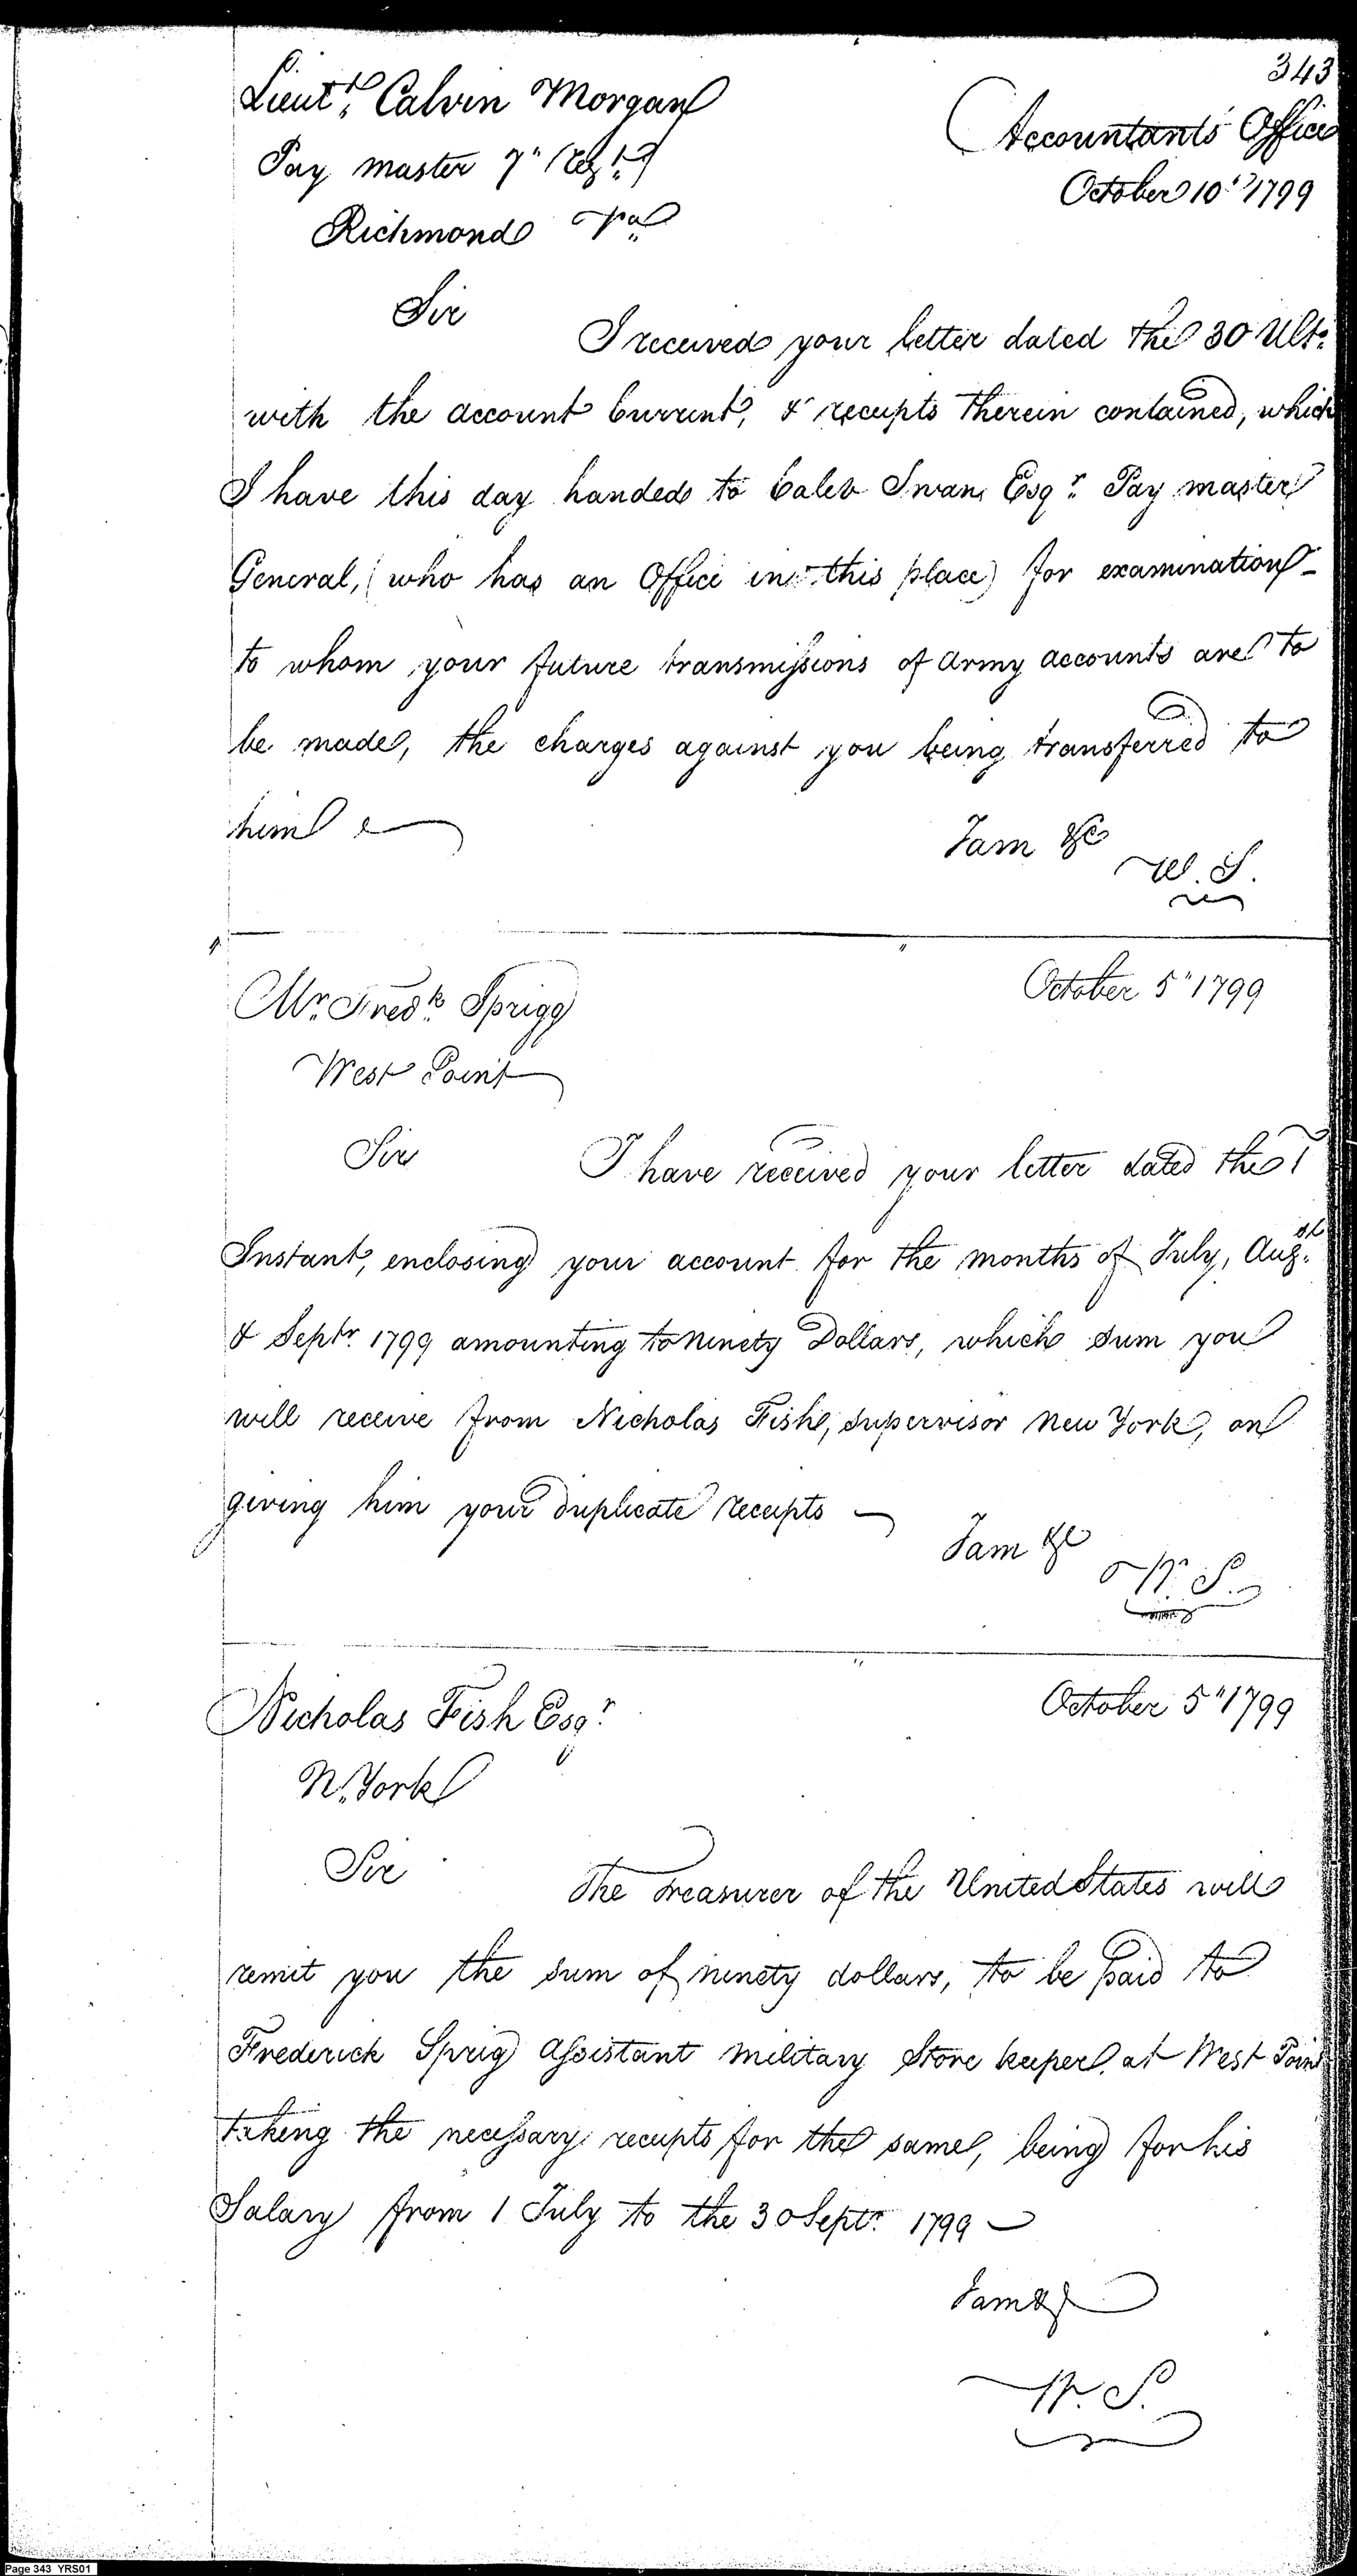 343
Lieut.t Calvin Morgan
Accountants Office
Pay master 7" Reg.t
October 10" 1799
Richmond Va
Sir
I received your letter dated the 30 Ulto.
with the account Current, & receipts therein contained, which
I have this day handed to Caleb Swan, Esqr. Pay master
General, (who has an Office in this place) for examination -
to whom your future transmissions of Army accounts are to
be made, the charges against you being transferred to
him
I am &c
W. S.
October 5" 1799
Mr. Fredk. Sprigg
West Point
Sir
I have received your letter dated the 1
Instant, enclosing your account for the months of July, Aug.st
& Septr. 1799 amounting to ninety Dollars, which sum you
will receive from Nicholas Fish, supervisor New York, on
giving him your duplicate receipts —
I am &c
W. S.
October 5" 1799
Nicholas Fish Esqr.
N. York
Sir
The Treasurer of the United States will
remit you the sum of ninety dollars, to be paid to
Frederick Sprig Assistant military Store keeper at West Point
taking the necessary receipts for the same, being for his
Salary from 1 July to the 30 Septr. 1799 —
I am &c
W. S.
Page 343 YRS01